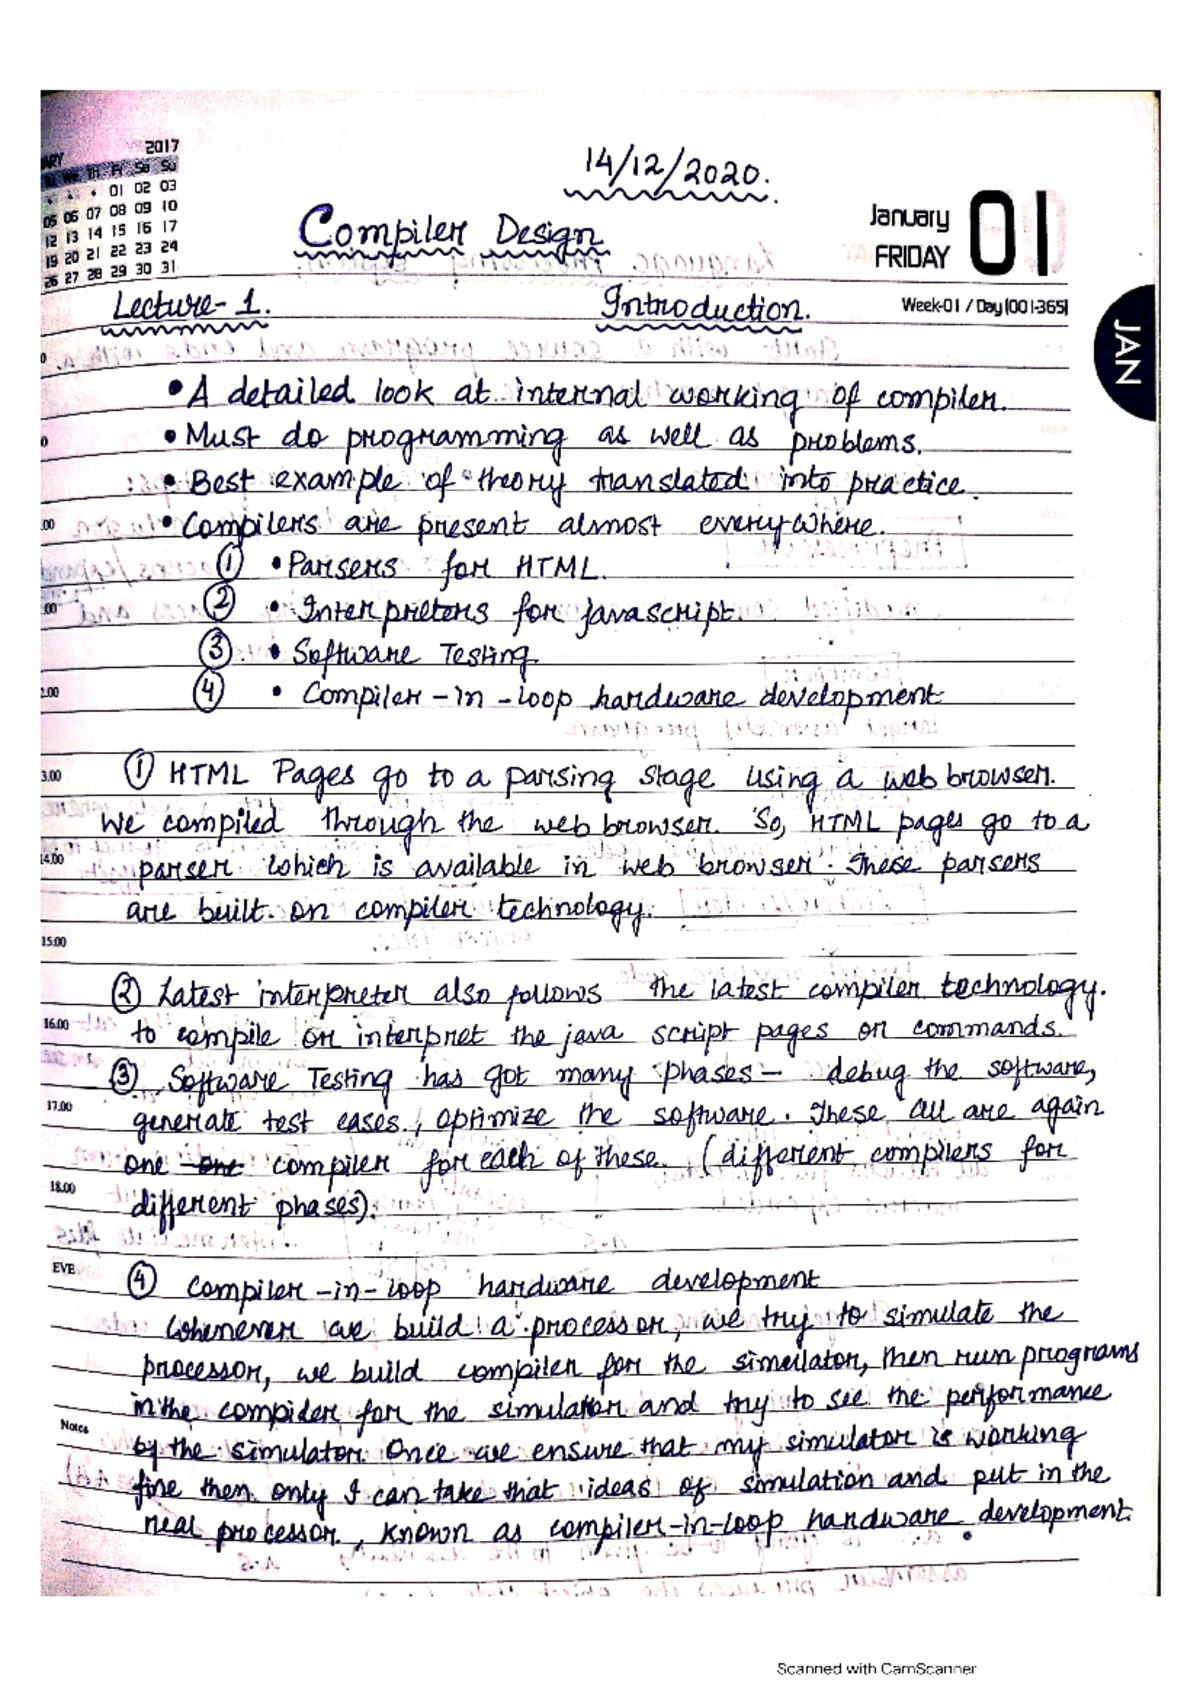 2017
14/12/2020.
ARY
Tu We Th Fr Sa Su
• • • 01 02 03
05 06 07 08 09 10
12 13 14 15 16 17
19 20 21 22 23 24
26 27 28 29 30 31
January
FRIDAY
01
Compiler Design
Lecture-1.
Introduction.
Week-01 / Day (001-365)
JAN
• A detailed look at internal working of compiler.
• Must do programming as well as problems.
• Best example of theory translated into practice.
.00 • Compilers are present almost everywhere.
① • Parsers for HTML.
.00 ② • Interpreters for javascript.
③ • Software Testing
2.00 ④ • Compiler-in-loop hardware development
3.00 ① HTML Pages go to a parsing stage using a web browser.
We compiled through the web browser. So, HTML pages go to a
14.00 parser which is available in web browser. These parsers
are built on compiler technology.
15.00
② Latest interpreter also follows the latest compiler technology.
16.00 to compile or interpret the java script pages or commands.
③ Software Testing has got many phases – debug the software,
17.00 generate test cases, optimize the software. These all are again
one one compiler for each of these. (different compilers for
18.00 different phases).
EVE ④ Compiler-in-loop hardware development
Whenever we build a processor, we try to simulate the
processor, we build compiler for the simulator, then run programs
in the compider for the simulator and try to see the performance
Notes by the simulator. Once we ensure that my simulator is working
fine then only I can take that ideas of simulation and put in the
real processor, known as compiler-in-loop hardware development.
Scanned with CamScanner